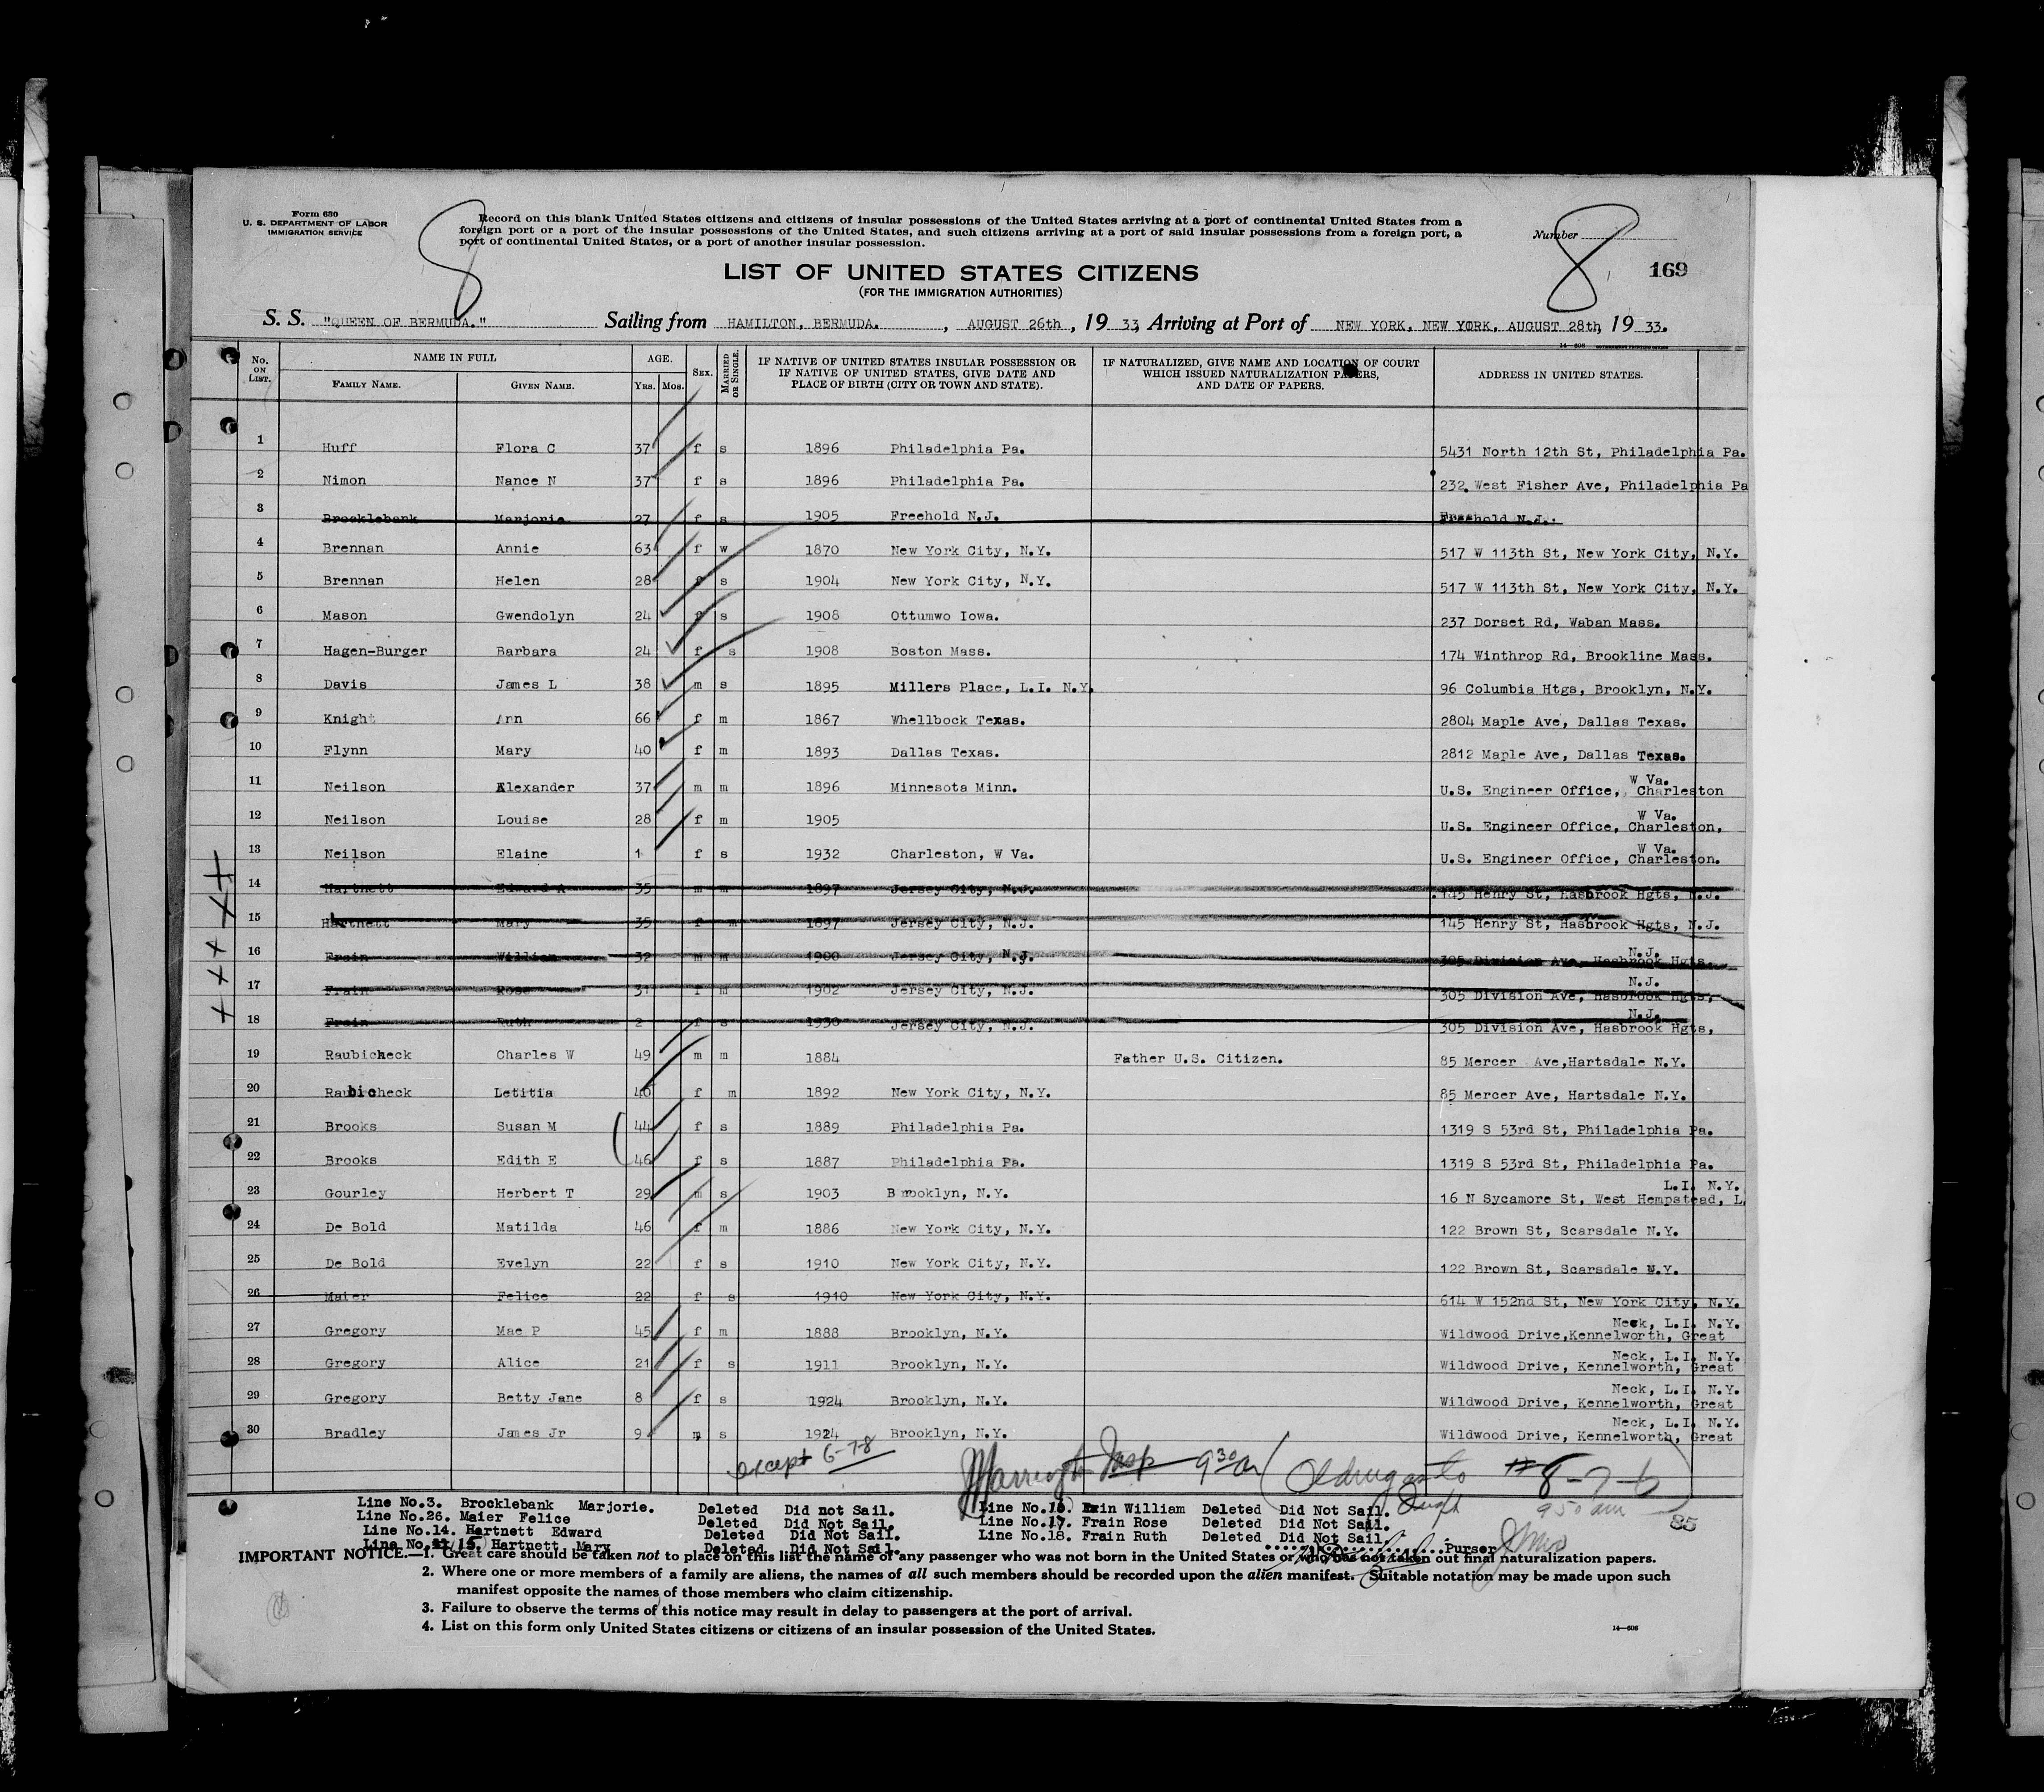 Form 630
U. S. DEPARTMENT OF LABOR
IMMIGRATION SERVICE
8
Record on this blank United States citizens and citizens of insular possessions of the United States arriving at a port of continental United States from a
foreign port or a port of the insular possessions of the United States, and such citizens arriving at a port of said insular possessions from a foreign port, a
port of continental United States, or a port of another insular possession.
Number 8
169
LIST OF UNITED STATES CITIZENS
(FOR THE IMMIGRATION AUTHORITIES)
S. S. "QUEEN OF BERMUDA." Sailing from HAMILTON, BERMUDA. , AUGUST 26th , 19 33, Arriving at Port of NEW YORK, NEW YORK, AUGUST 28th, 19 33.
14—608
No. ON LIST. NAME IN FULL AGE. SEX. MARRIED OR SINGLE. IF NATIVE OF UNITED STATES INSULAR POSSESSION OR IF NATIVE OF UNITED STATES, GIVE DATE AND PLACE OF BIRTH (CITY OR TOWN AND STATE). IF NATURALIZED, GIVE NAME AND LOCATION OF COURT WHICH ISSUED NATURALIZATION PAPERS, AND DATE OF PAPERS. ADDRESS IN UNITED STATES.
FAMILY NAME. GIVEN NAME. Yrs. Mos.
1 Huff Flora C 37 f s 1896 Philadelphia Pa. 5431 North 12th St, Philadelphia Pa.
2 Nimon Nance N 37 f s 1896 Philadelphia Pa. 232 West Fisher Ave, Philadelphia Pa
3 Brocklebank Marjorie 27 f s 1905 Freehold N.J. Freehold N.J.
4 Brennan Annie 63 f w 1870 New York City, N.Y. 517 W 113th St, New York City, N.Y.
5 Brennan Helen 28 f s 1904 New York City, N.Y. 517 W 113th St, New York City, N.Y.
6 Mason Gwendolyn 24 f s 1908 Ottumwo Iowa. 237 Dorset Rd, Waban Mass.
7 Hagen-Burger Barbara 24 f s 1908 Boston Mass. 174 Winthrop Rd, Brookline Mass.
8 Davis James L 38 m s 1895 Millers Place, L.I. N.Y. 96 Columbia Htgs, Brooklyn, N.Y.
9 Knight Ann 66 f m 1867 Whellbock Texas. 2804 Maple Ave, Dallas Texas.
10 Flynn Mary 40 f m 1893 Dallas Texas. 2812 Maple Ave, Dallas Texas.
11 Neilson Alexander 37 m m 1896 Minnesota Minn. U.S. Engineer Office, Charleston W Va.
12 Neilson Louise 28 f m 1905 U.S. Engineer Office, Charleston, W Va.
13 Neilson Elaine 1 f s 1932 Charleston, W Va. U.S. Engineer Office, Charleston. W Va.
14 Hartnett Edward A 35 m m 1897 Jersey City, N.J. 145 Henry St, Hasbrook Hgts, N.J.
15 Hartnett Mary 35 f m 1897 Jersey City, N.J. 145 Henry St, Hasbrook Hgts, N.J.
16 Frain William 32 m m 1900 Jersey City, N.J. 305 Division Ave, Hasbrook Hgts. N.J.
17 Frain Rose 31 f m 1902 Jersey City, N.J. 305 Division Ave, Hasbrook Hgts, N.J.
18 Frain Ruth 2 f s 1930 Jersey City, N.J. 305 Division Ave, Hasbrook Hgts, N.J.
19 Raubicheck Charles W 49 m m 1884 Father U.S. Citizen. 85 Mercer Ave,Hartsdale N.Y.
20 Raubicheck Letitia 40 f m 1892 New York City, N.Y. 85 Mercer Ave, Hartsdale N.Y.
21 Brooks Susan M 44 f s 1889 Philadelphia Pa. 1319 S 53rd St, Philadelphia Pa.
22 Brooks Edith E 46 f s 1887 Philadelphia Pa. 1319 S 53rd St, Philadelphia Pa.
23 Gourley Herbert T 29 m s 1903 Brooklyn, N.Y. 16 N Sycamore St, West Hempstead, L L.I. N.Y.
24 De Bold Matilda 46 f m 1886 New York City, N.Y. 122 Brown St, Scarsdale N.Y.
25 De Bold Evelyn 22 f s 1910 New York City, N.Y. 122 Brown St, Scarsdale N.Y.
26 Maier Felice 22 f s 1910 New York City, N.Y. 614 W 152nd St, New York City, N.Y.
27 Gregory Mae P 45 f m 1888 Brooklyn, N.Y. Wildwood Drive,Kennelworth, Great Neck, L.I. N.Y.
28 Gregory Alice 21 f s 1911 Brooklyn, N.Y. Wildwood Drive, Kennelworth, Great Neck, L.I. N.Y.
29 Gregory Betty Jane 8 f s 1924 Brooklyn, N.Y. Wildwood Drive, Kennelworth, Great Neck, L.I. N.Y.
30 Bradley James Jr 9 m s 1924 Brooklyn, N.Y. Wildwood Drive, Kennelworth, Great Neck, L.I. N.Y.
except 6-7-8 Insp 9 30 am # 8-7-6
9 50 am
Line No.3. Brocklebank Marjorie. Deleted Did not Sail.
Line No.26. Maier Felice Deleted Did Not Sail.
Line No.14. Hartnett Edward Deleted Did Not Sail.
Line No. 15. Hartnett Mary Deleted Did Not Sail.
Line No.16. Frain William Deleted Did Not Sail.
Line No.17. Frain Rose Deleted Did Not Sail.
Line No.18. Frain Ruth Deleted Did Not Sail.
85
Purser
IMPORTANT NOTICE.—1. Great care should be taken not to place on this list the name of any passenger who was not born in the United States or who has not taken out final naturalization papers.
2. Where one or more members of a family are aliens, the names of all such members should be recorded upon the alien manifest. Suitable notation may be made upon such
manifest opposite the names of those members who claim citizenship.
3. Failure to observe the terms of this notice may result in delay to passengers at the port of arrival.
4. List on this form only United States citizens or citizens of an insular possession of the United States.
14—608